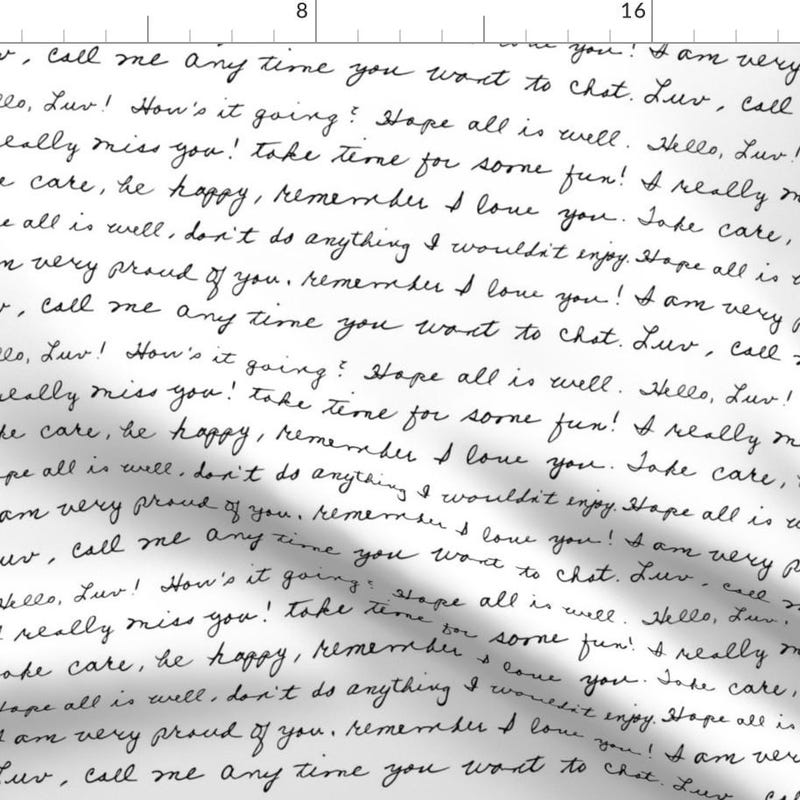 8 16
you! I am very
, call me any time you want to chat. Luv, call
Luv! How's it going? Hope all is well. Hello, Luv!
really miss you! take time for some fun! I really
care, be happy, remember I love you. Take care,
all is well, don't do anything I wouldn't enjoy. Hope all is
very proud of you. remember I love you! I am very
, call me any time you want to chat. Luv, call
Luv! How's it going? Hope all is well. Hello, Luv!
really miss you! take time for some fun! I really
care, be happy, remember I love you. Take care,
all is well, don't do anything I wouldn't enjoy. Hope all is
am very proud of you. remember I love you! I am very
, call me any time you want to chat. Luv, call
Hello, Luv! How's it going? Hope all is well. Hello, Luv!
I really miss you! take time for some fun! I really
care, be happy, remember I love you. Take care,
Hope all is well, don't do anything I wouldn't enjoy. Hope all is
I am very proud of you. remember I love you! I am very
Luv, call me any time you want to chat. Luv,